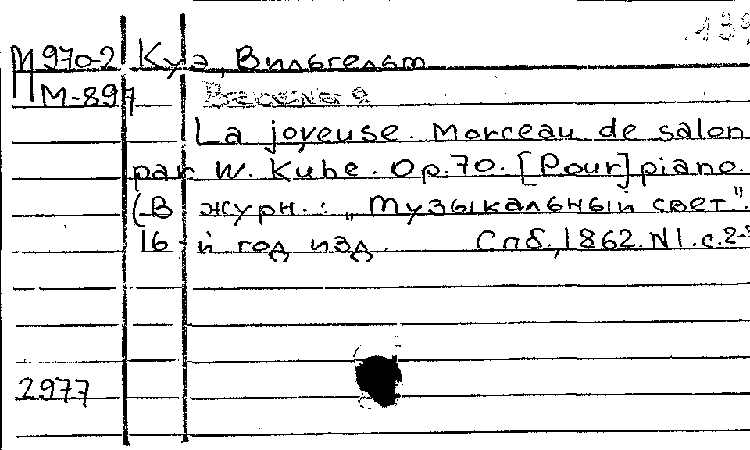 139
М 970-2 Куэ, Вильгельм
М-897 Веселье
La joyeuse. Morceau de salon
par W. Kuhe. Op. 70. [Pour] piano.
(В журн.: „Музыкальный свет".
16-й год изд. Спб., 1862. N1. с. 2-
2977